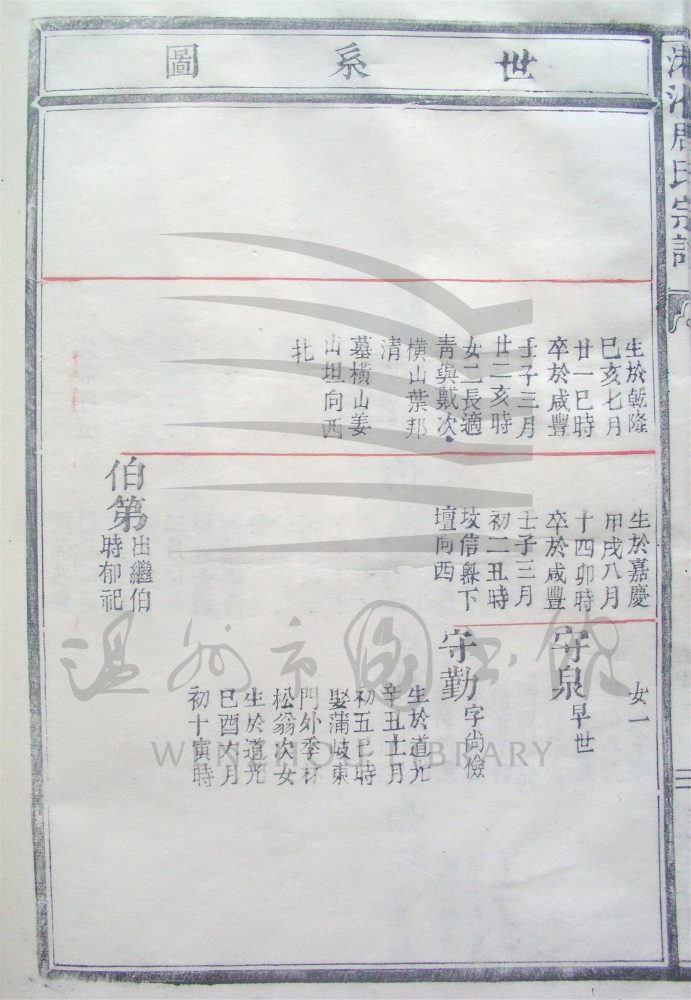 世系圖
周氏宗
生於乾隆
巳亥七月
廿一巳時
卒於咸豐
壬子三月
廿二亥時
女二長適
青與戴次
橫山葉邦
清
墓橫山姜
山坦向西
北
生於嘉慶
甲戌八月
十四卯時
卒於咸豐
壬子三月
初二丑時
坟信嶴下
壇向西
伯第
出繼伯
時郁祀
女一
守泉
早世
守勤
字尚儉
生於道光
辛丑十一月
初五巳時
娶蒲岐東
門外季林
松翁次女
生於道光
巳酉六月
初十寅時
溫州市图书馆
WENZHOU LIBRARY